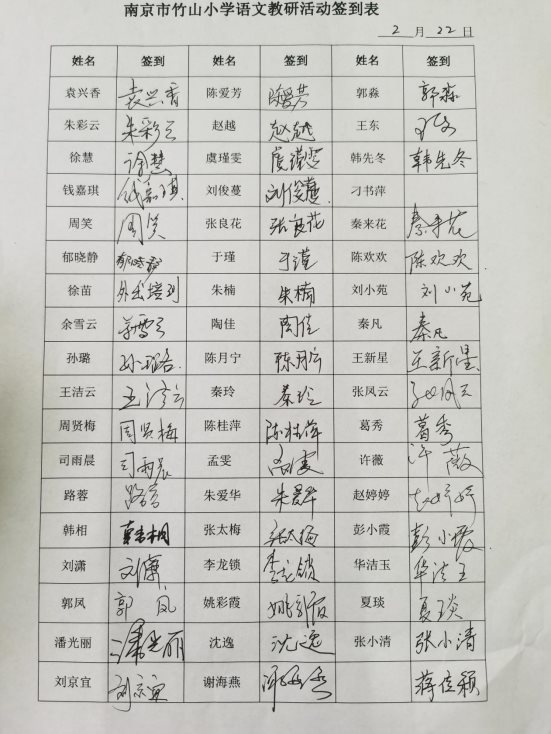 南京市竹山小学语文教研活动签到表
2 月 22 日
姓名 签到 姓名 签到 姓名 签到
袁兴香 袁兴香 陈爱芳 陈爱芳 郭淼 郭淼
朱彩云 朱彩云 赵越 赵越 王东
徐慧 徐慧 虞瑾雯 虞瑾雯 韩先冬 韩先冬
钱嘉琪 钱嘉琪 刘俊蔓 刘俊蔓 刁书萍
周笑 周笑 张良花 张良花 秦来花 秦来花
郁晓静 郁晓静 于瑾 于瑾 陈欢欢 陈欢欢
徐苗 外出培训 朱楠 朱楠 刘小苑 刘小苑
余雪云 余雪云 陶佳 陶佳 秦凡 秦凡
孙璐 孙璐 陈月宁 陈月宁 王新星 王新星
王洁云 王洁云 秦玲 秦玲 张凤云 张凤云
周贤梅 周贤梅 陈桂萍 陈桂萍 葛秀 葛秀
司雨晨 司雨晨 孟雯 孟雯 许薇 许薇
路蓉 路蓉 朱爱华 朱爱华 赵婷婷 赵婷婷
韩相 韩相 张太梅 张太梅 彭小霞 彭小霞
刘潇 刘潇 李龙锁 李龙锁 华洁玉 华洁玉
郭凤 郭凤 姚彩霞 姚彩霞 夏琰 夏琰
潘光丽 潘光丽 沈逸 沈逸 张小清 张小清
刘京宜 刘京宜 谢海燕 蒋佳颖